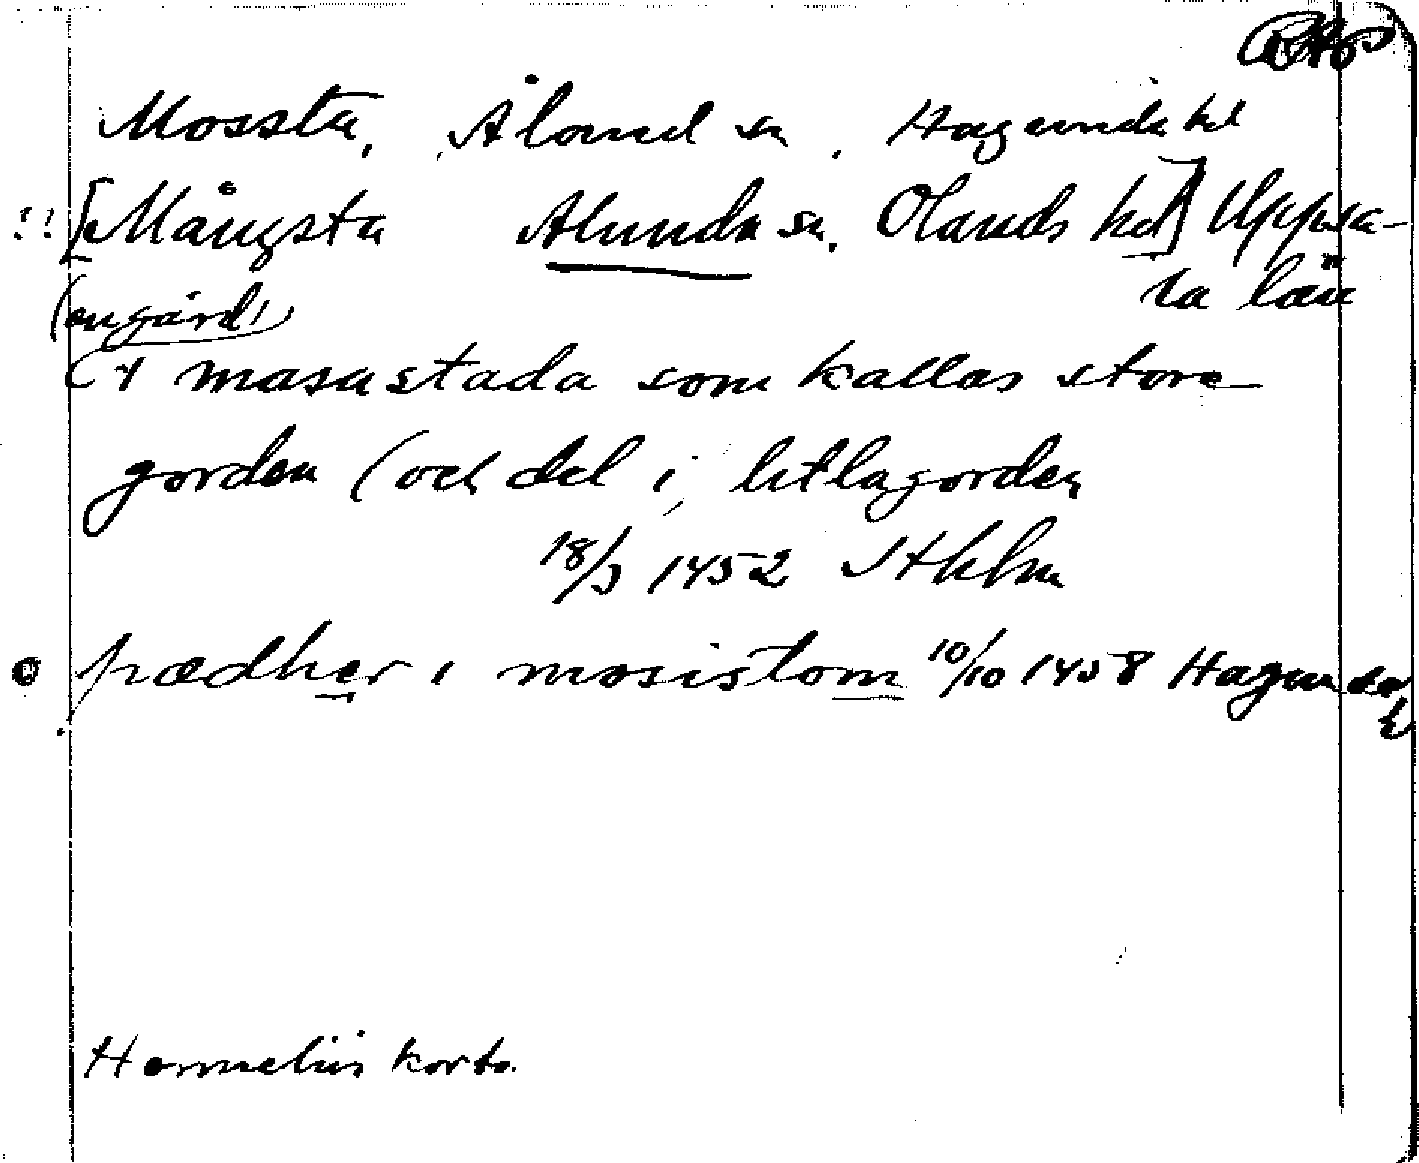 Mossta, Åland sn, Hagunda hd
!! [Mångsta Alunda sn, Olands hd] Uppsa-
la län
(en gård)
(i masastada som kallas store-
gorden (och del i litlagorden
18/3 1452 Sthlm
pædher i mosistom 10/10 1458 Hagunda
h
Hornelius korta.